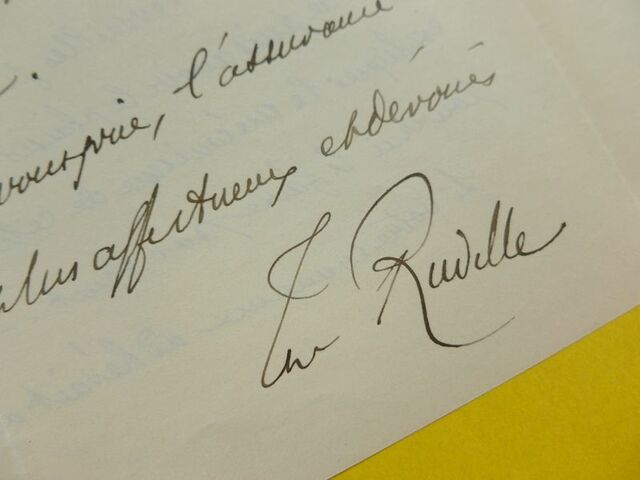 vous prie, l'assurance
plus affectueux et dévoués
Ruville